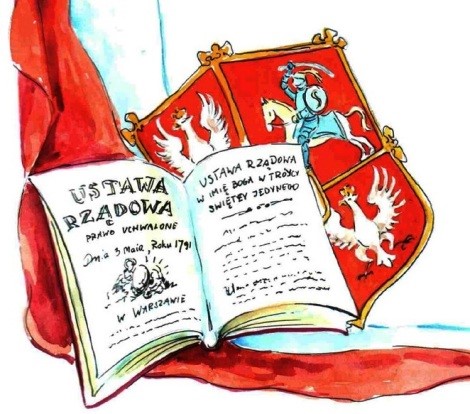 USTAWA
RZĄDOWA
PRAWO UCHWALONE
Dnia 3 Maia, Roku 1791
W WARSZAWIE
USTAWA RZĄDOWA
W IMIĘ BOGA W TRÓJCY
ŚWIĘTEY JEDYNEGO